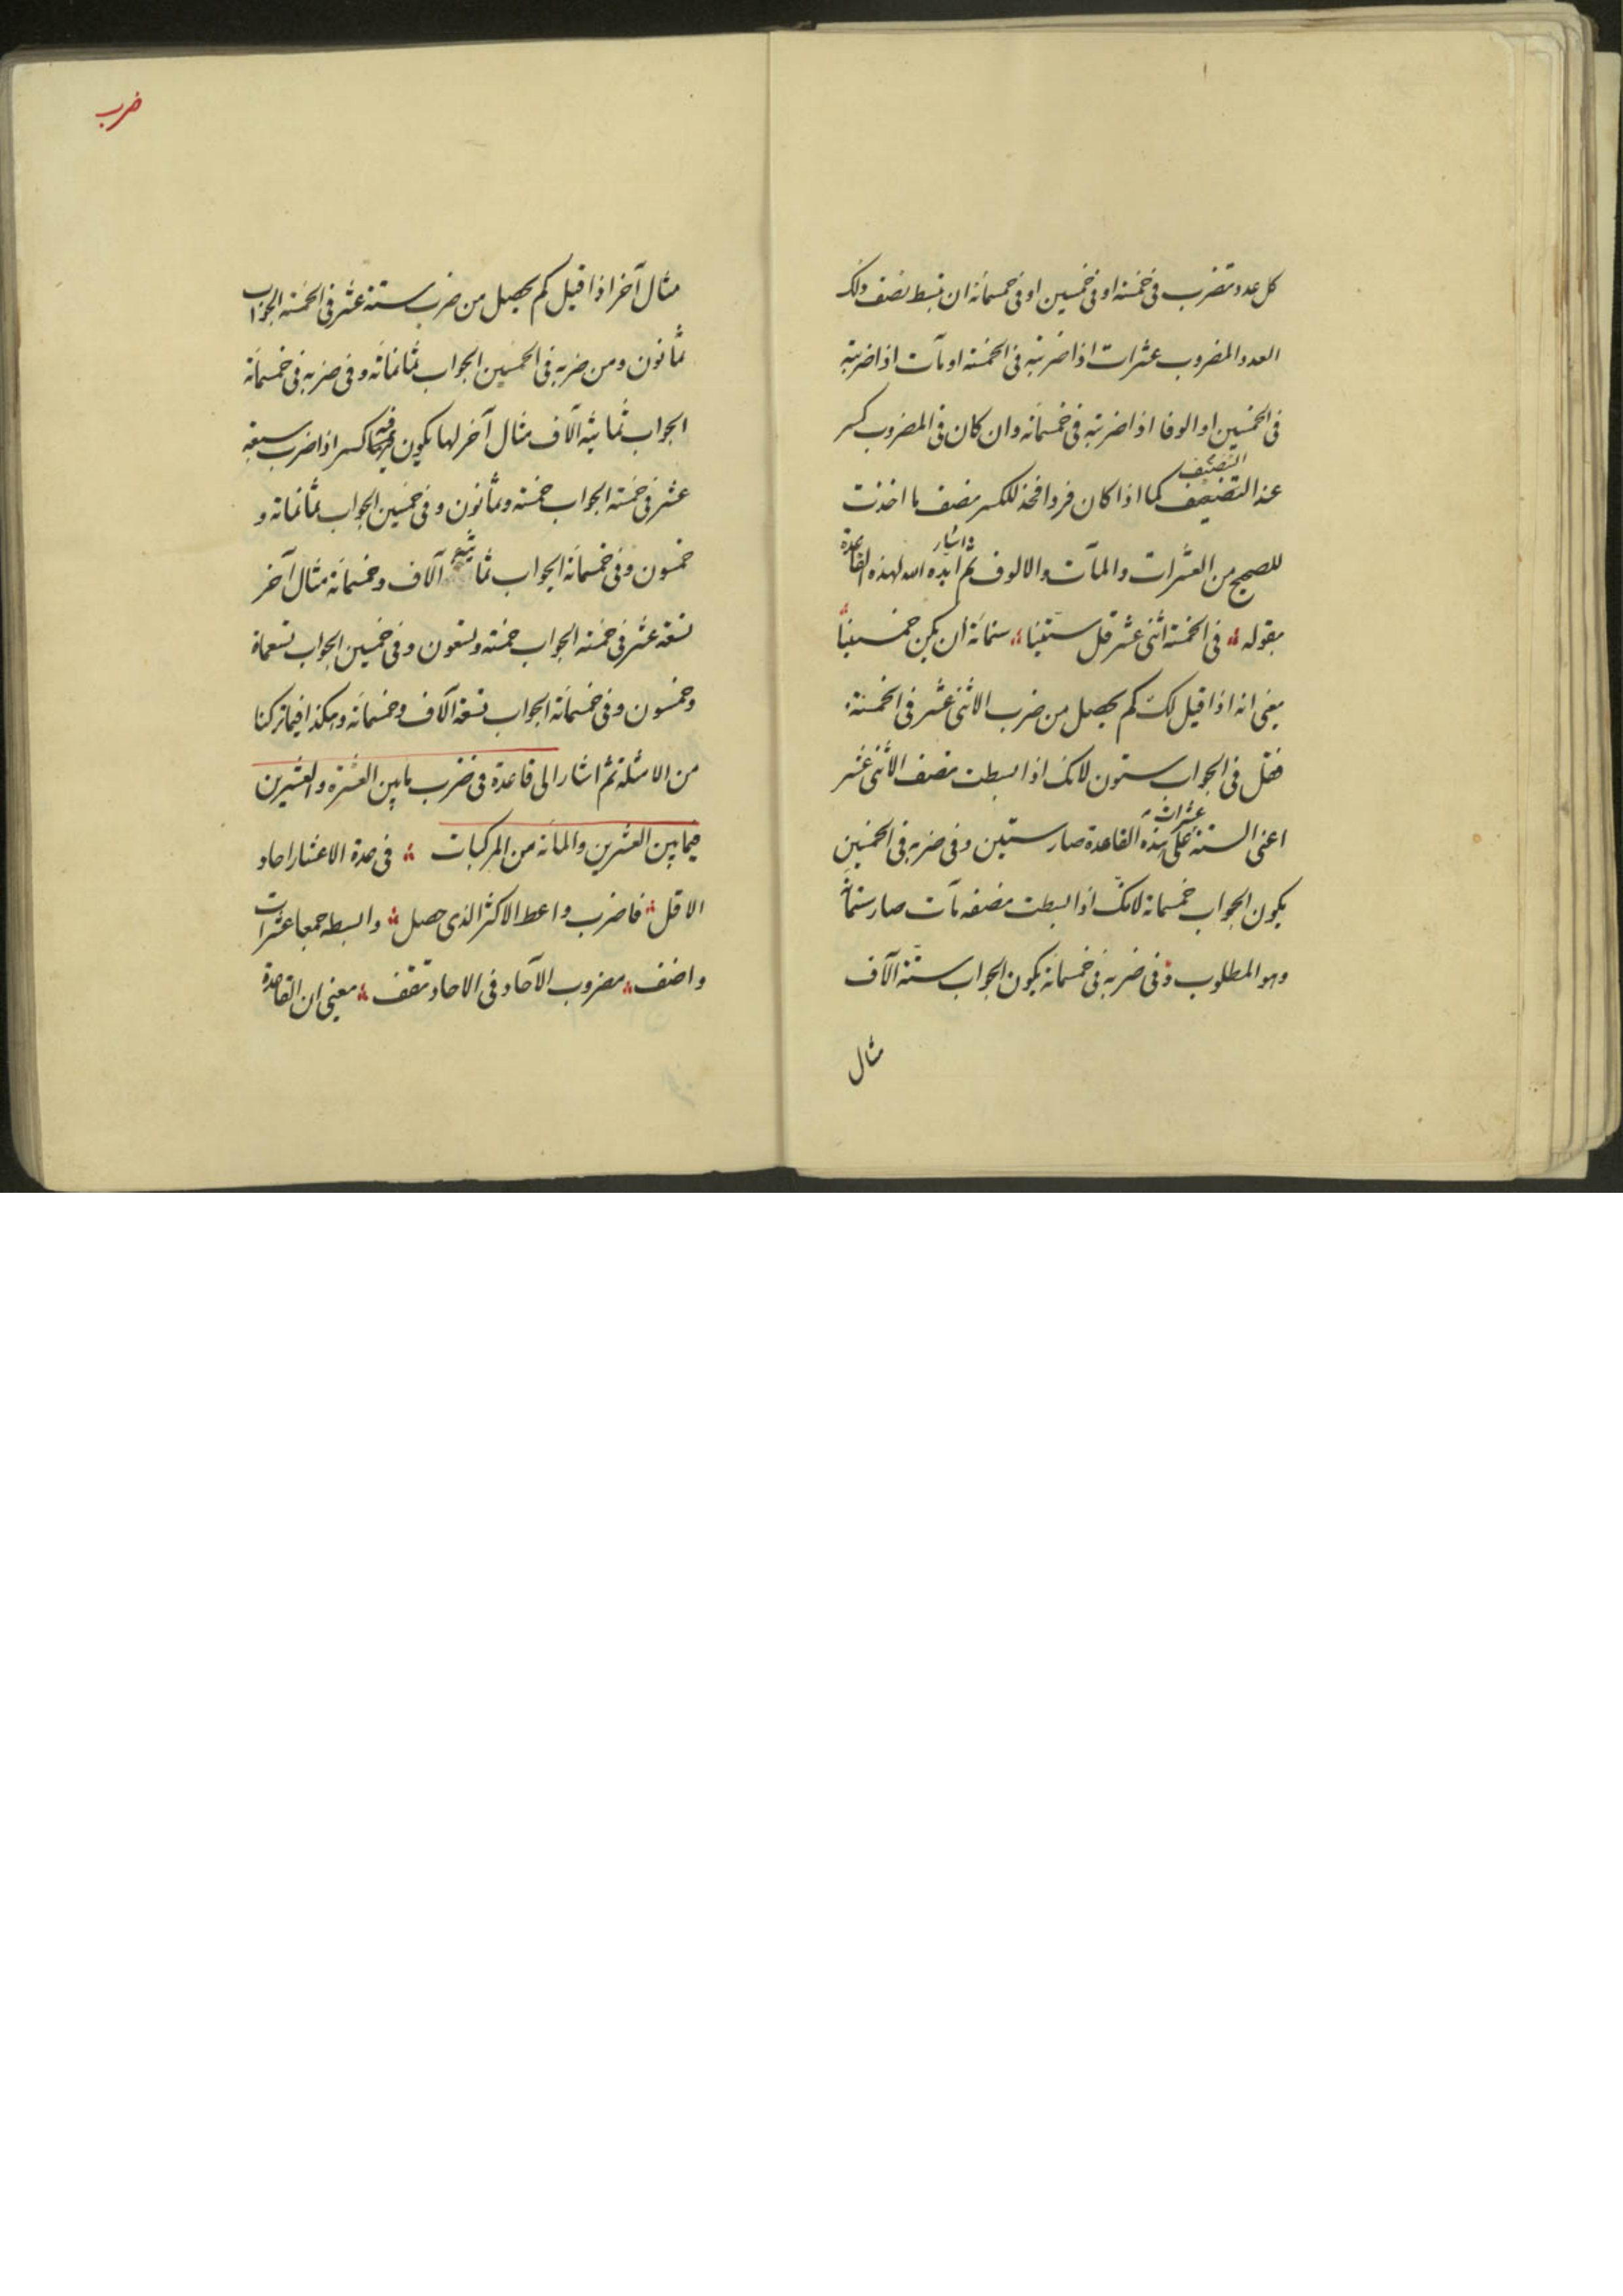 كل عدد تضرب فى خمسة او فى خمسين او فى خمسمائة ان تبسط نصف ذلك
العدد المضروب عشرات اذا ضربته فى الخمسة او مآت اذا ضربته
فى الخمسين او الوفا اذا ضربته فى خمسمائة وان كان فى المضروب كسر
التنصيف
عند التنصيف كما اذا كان فردا فخذ للكسر نصف ما اخذت
واشار
للصحيح من العشرات والمآت والالوف ثم ايده الله لهذه القاعدة
بقوله فى الخمسة اثنى عشر قل ستينا ستمائة ان يكن خمسينا
يعنى انه اذا قيل لك كم يحصل من ضرب الاثنى عشر فى الخمسة
فقل فى الجواب ستون لانك اذا بسطت نصف الاثنى عشر
عشرات
اعنى الستة على هذه القاعدة صار ستين وفى ضربه فى الخمسين
يكون الجواب خمسمائة لانك اذا بسطت نصفه مآت صار ستمائة
وهو المطلوب وفى ضربه فى خمسمائة يكون الجواب ستة آلاف
مثال
ضرب
مثال آخر اذا قيل كم يحصل من ضرب ستة عشر فى الخمسة الجواب
ثمانون ومن ضربه فى الخمسين الجواب ثمانمائة وفى ضربه فى خمسمائة
الجواب ثمانية آلاف مثال آخر لها يكون فيه كسر اذا ضرب سبعة
عشر فى خمسة الجواب خمسة وثمانون وفى خمسين الجواب ثمانمائة و
خمسون وفى خمسمائة الجواب ثمانية آلاف وخمسمائة مثال آخر
تسعة عشر فى خمسة الجواب خمسة وتسعون وفى خمسين الجواب تسعمائة
وخمسون وفى خمسمائة الجواب تسعة آلاف وخمسمائة وهكذا فيما تركنا
من الامثلة ثم اشار الى قاعدة فى ضرب ما بين العشرة والعشرين
فيما بين العشرين والمائة من المركبات فى عدة الاعشار احاد
الاقل فاضرب واعط الاكثر الذى حصل وابسطه جمعا عشرات
واضف مضروب الآحاد فى الاحاد تقف معنى ان القاعدة